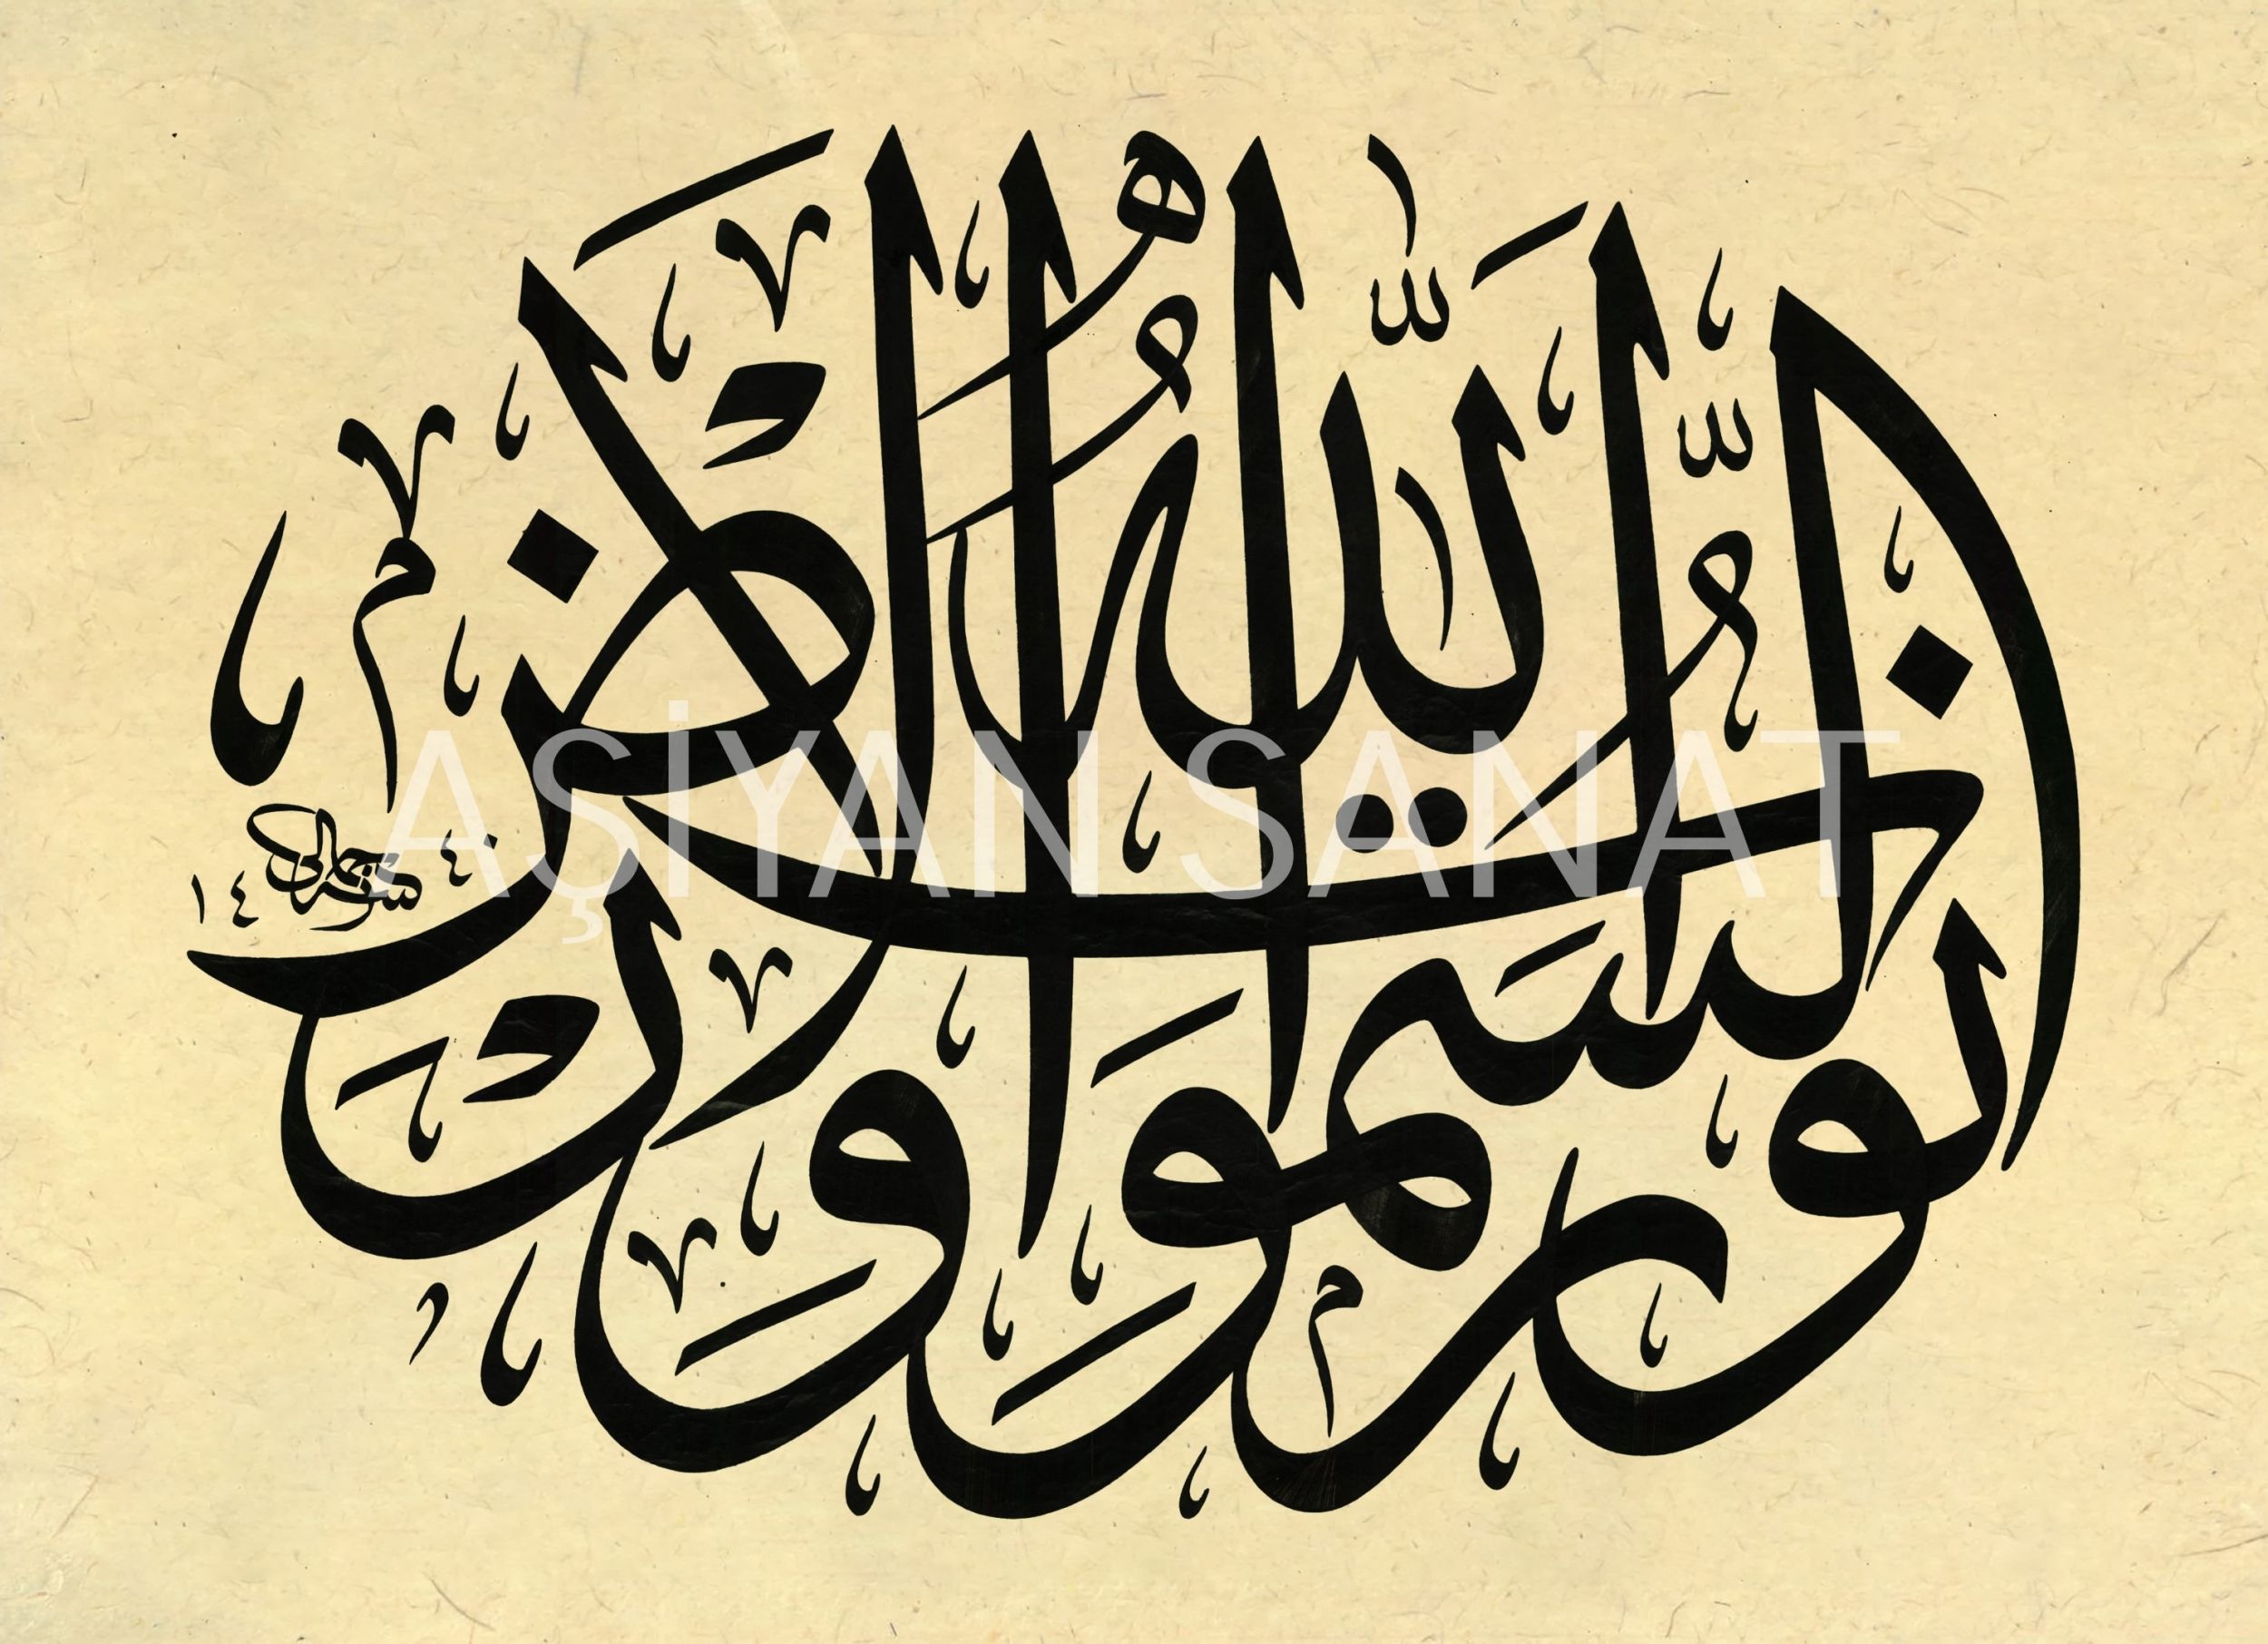 الله نور السموات والأرض
AŞİYAN SANAT